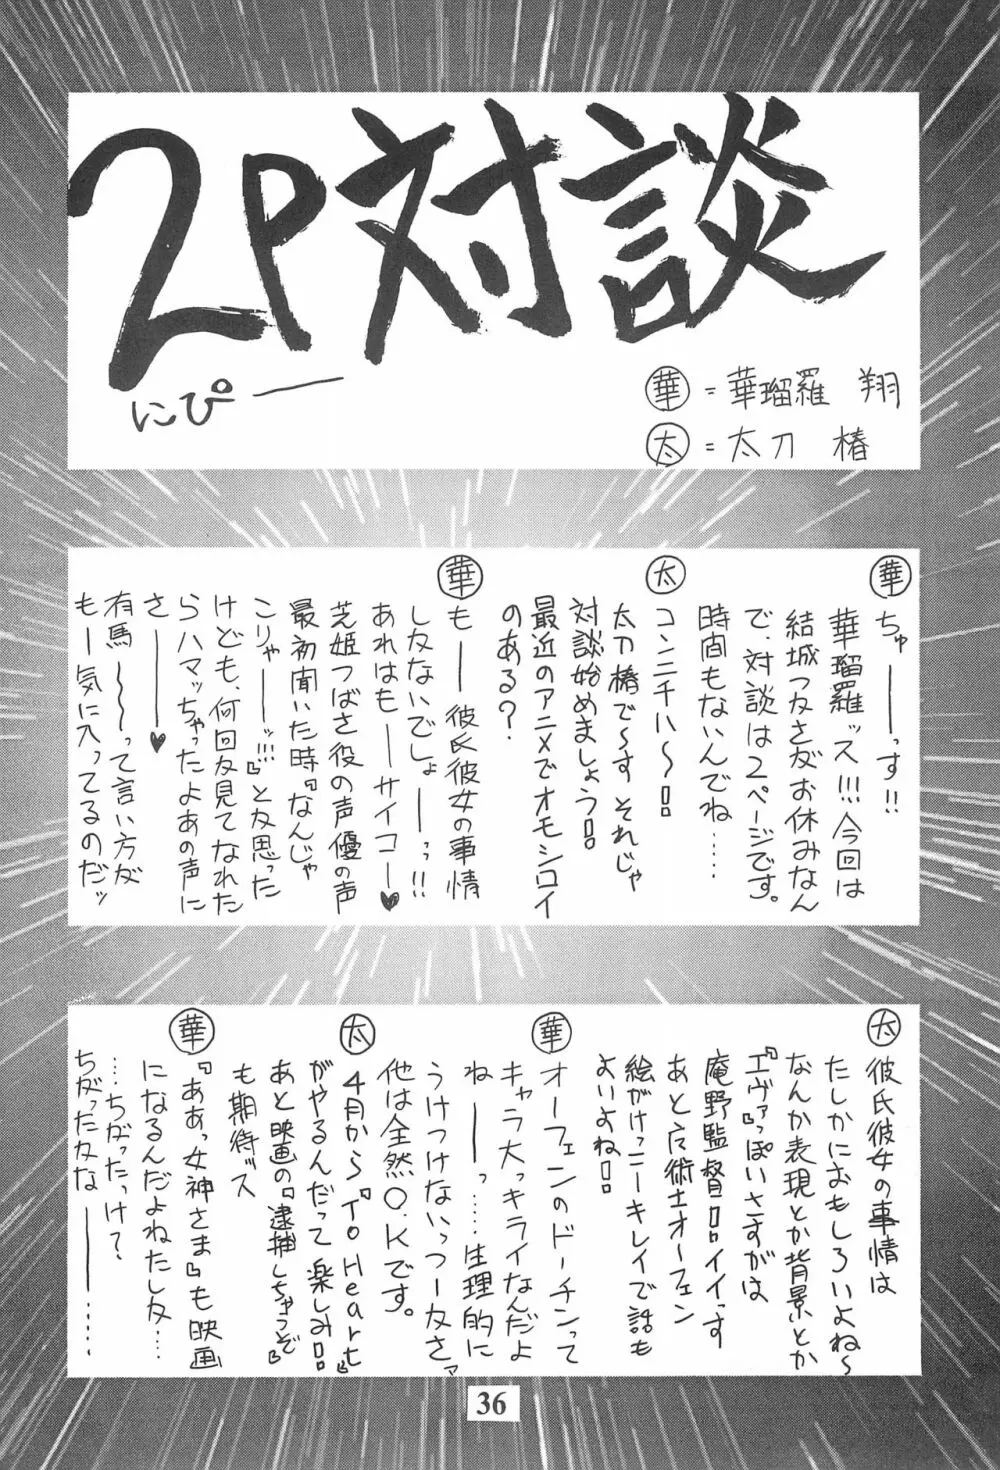 2P対談
にぴー
華=華瑠羅 翔
太=太刀 椿
華
ちゅーーっす!!
華瑠羅ッス!!!今回は
結城つかさがお休みなん
で、対談は2ページです。
時間もないんでね……
太
コンニチハ〜!!
太刀椿で〜す それじゃ
対談始めましょう!!
最近のアニメでオモシロイ
のある?
華
もー 彼氏彼女の事情
しかないでしょーーっ!!
あれはもーサイコー♥
芝姫つばさ役の声優の声
最初聞いた時『なんじゃ
こりゃーーッ!!!』と思った
けども、何回か見てなれた
らハマッちゃったよあの声に
さーーー♥
有馬〜〜って言い方が
もー気に入ってるのだッ
太
彼氏彼女の事情は
たしかにおもしろいよね〜
なんか表現とか背景とか
『エヴァ』っぽいさすがは
庵野監督!!イイっす
あと魔術士オーフェン
絵がけっこーキレイで話も
よいよね!!
華
オーフェンのドーチンって
キャラ大っキライなんだよ
ねーーっ……生理的に
うけつけないっつーかさァ
他は全然O.Kです。
太
4月から『To Heart』
がやるんだって楽しみ!!
あと映画の『逮捕しちゃうぞ』
も期待ズス
華
『ああっ女神さま』も映画
になるんだよねたしか……
……ちがったっけ?
ちがったかなーーー……
36